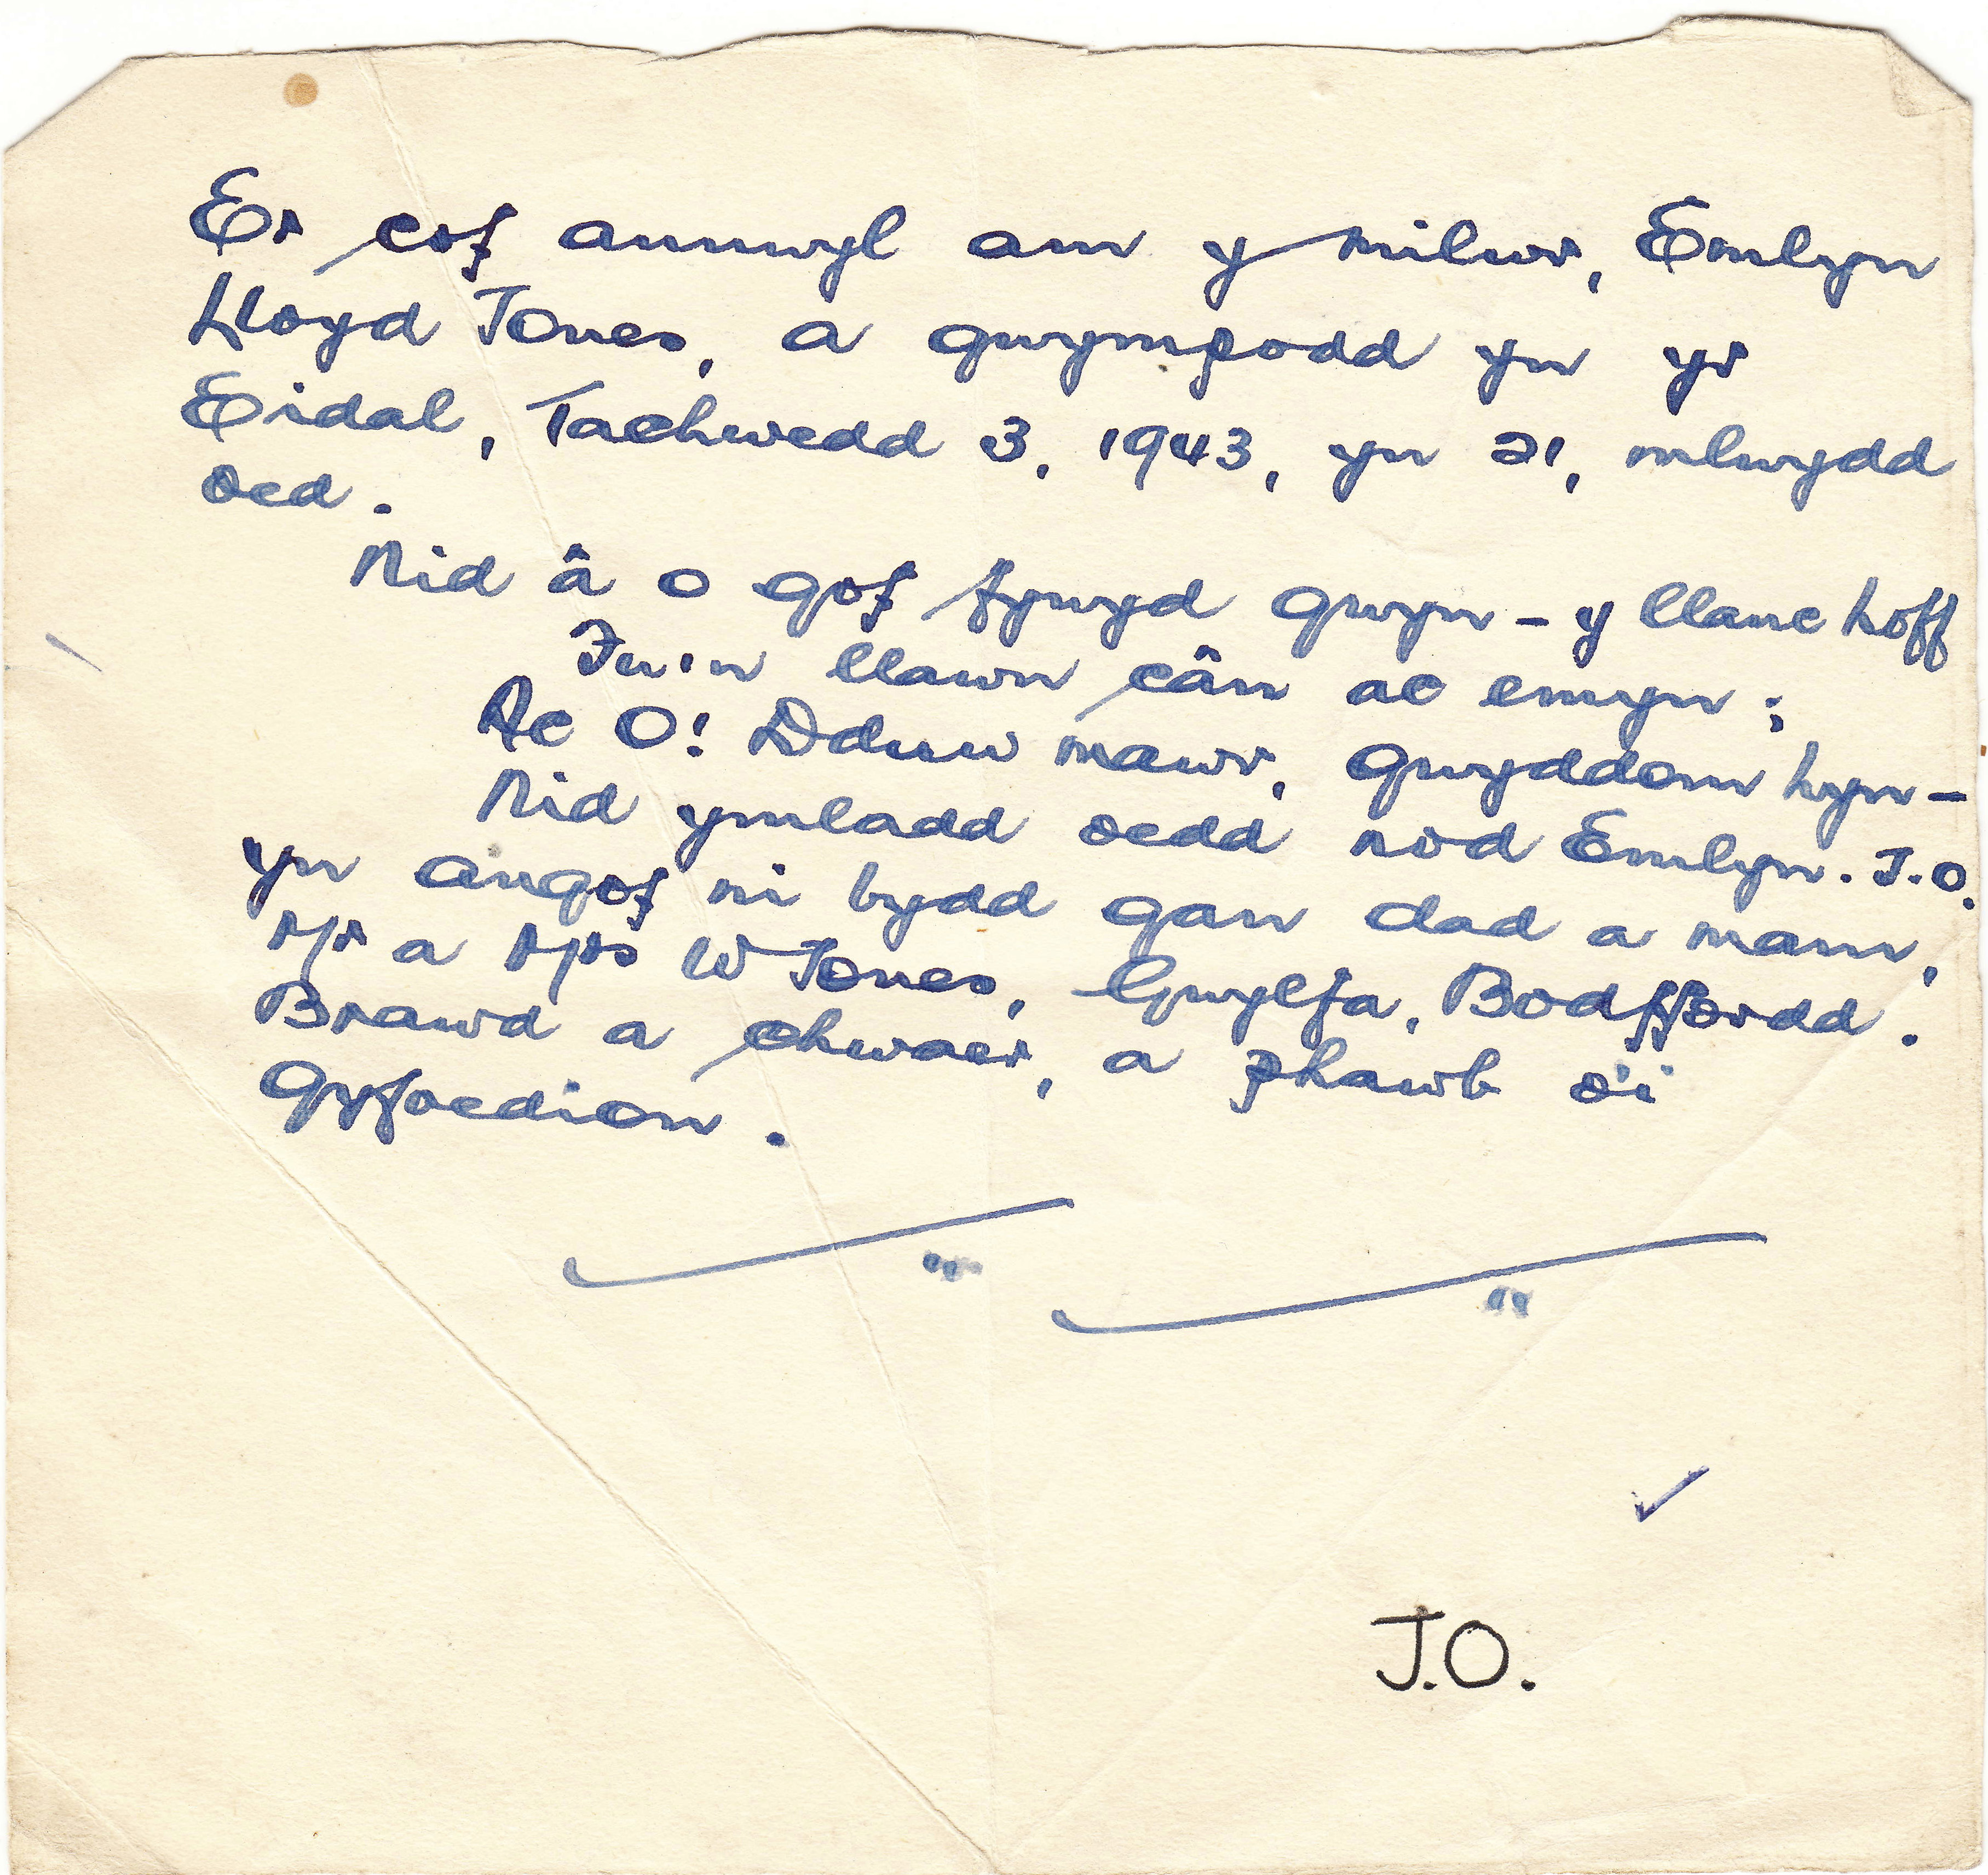 Er cof annwyl am y milwr, Emlyn
Lloyd Jones, a gwympodd yn yr
Eidal, Tachwedd 3, 1943, yn 21, mlwydd
oed.
Nid â o gof fywyd gwyn - y llanc hoff
Fu'n llawn cân ac emyn;
Ac O! Dduw mawr, gwyddom hyn -
Nid ymladd oedd nod Emlyn. J.O.
yn angof ni bydd gan dad a mam,
Mr a Mrs W Jones, Gwylfa, Bodffordd.
Brawd a chwaer, a phawb o'i
Gyfoedion.
J.O.